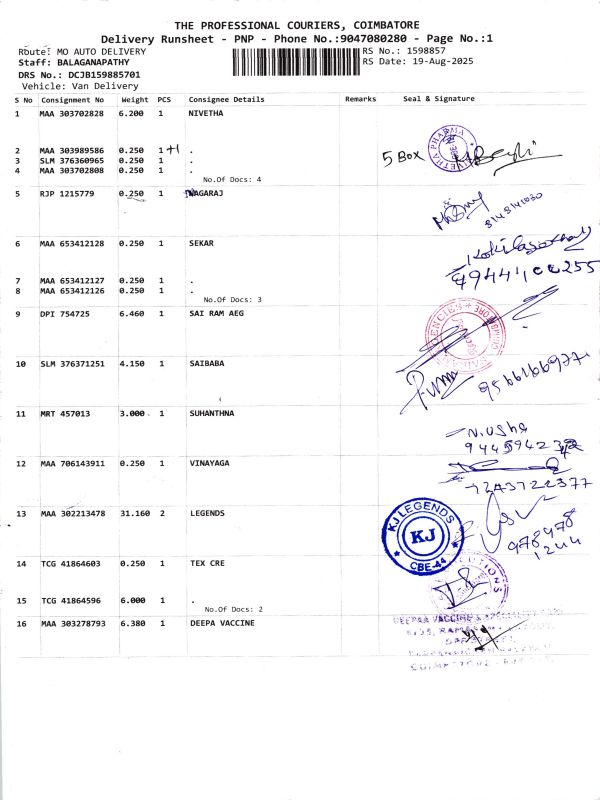 THE PROFESSIONAL COURIERS, COIMBATORE
Delivery Runsheet - PNP - Phone No.:9047080280 - Page No.:1
Route: MO AUTO DELIVERY RS No.: 1598857
Staff: BALAGANAPATHY RS Date: 19-Aug-2025
DRS No.: DCJB159885701
Vehicle: Van Delivery
S No Consignment No Weight PCS Consignee Details Remarks Seal & Signature
1 MAA 303702828 6.200 1 NIVETHA
2 MAA 303989586 0.250 1 +1 . 5 Box
3 SLM 376360965 0.250 1 .
4 MAA 303702808 0.250 1 .
No.Of Docs: 4
5 RJP 1215779 0.250 1 NAGARAJ
6 MAA 653412128 0.250 1 SEKAR
7 MAA 653412127 0.250 1 .
8 MAA 653412126 0.250 1 .
No.Of Docs: 3
9 DPI 754725 6.460 1 SAI RAM AEG
10 SLM 376371251 4.150 1 SAIBABA
11 MRT 457013 3.000 1 SUHANTHNA
N.Usha
12 MAA 706143911 0.250 1 VINAYAGA
13 MAA 302213478 31.160 2 LEGENDS
KJ LEGENDS
KJ
CBE-44
978478
1244
14 TCG 41864603 0.250 1 TEX CRE
15 TCG 41864596 6.000 1 .
No.Of Docs: 2
16 MAA 303278793 6.380 1 DEEPA VACCINE
DEEPAA VACCINE &